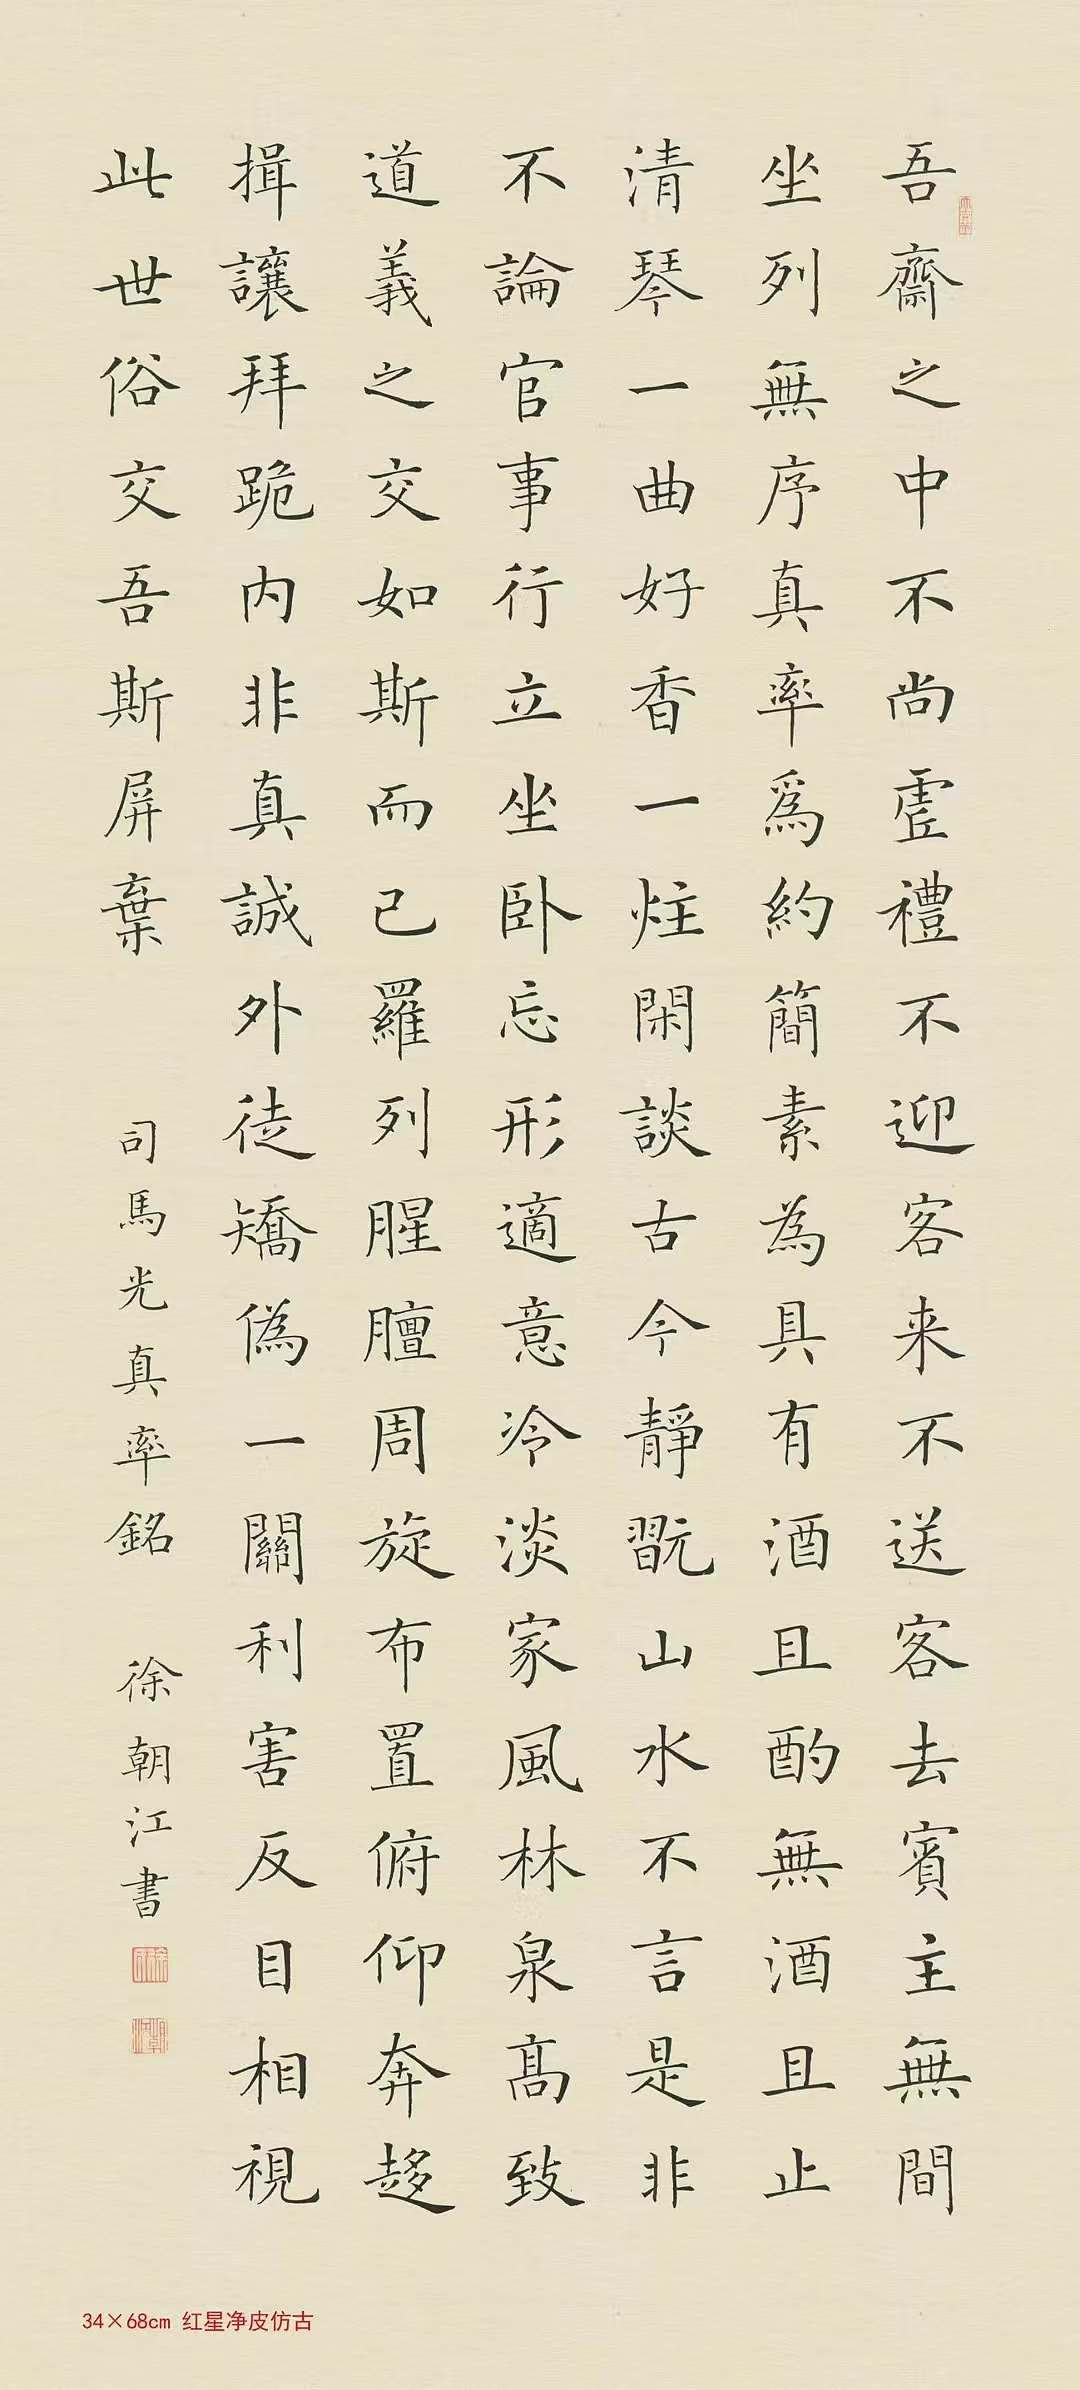 吾齋之中不尚虗禮不迎客来不送客去賓主無間
坐列無序真率爲約簡素為具有酒且酌無酒且止
清琴一曲好香一炷閑談古今靜翫山水不言是非
不論官事行立坐卧忘形適意冷淡家風林泉髙致
道義之交如斯而已羅列腥膻周旋布置俯仰奔趍
揖讓拜跪内非真誠外徒矯偽一關利害反目相視
此世俗交吾斯屏棄
司馬光真率銘
徐朝江書
34×68cm 红星净皮仿古